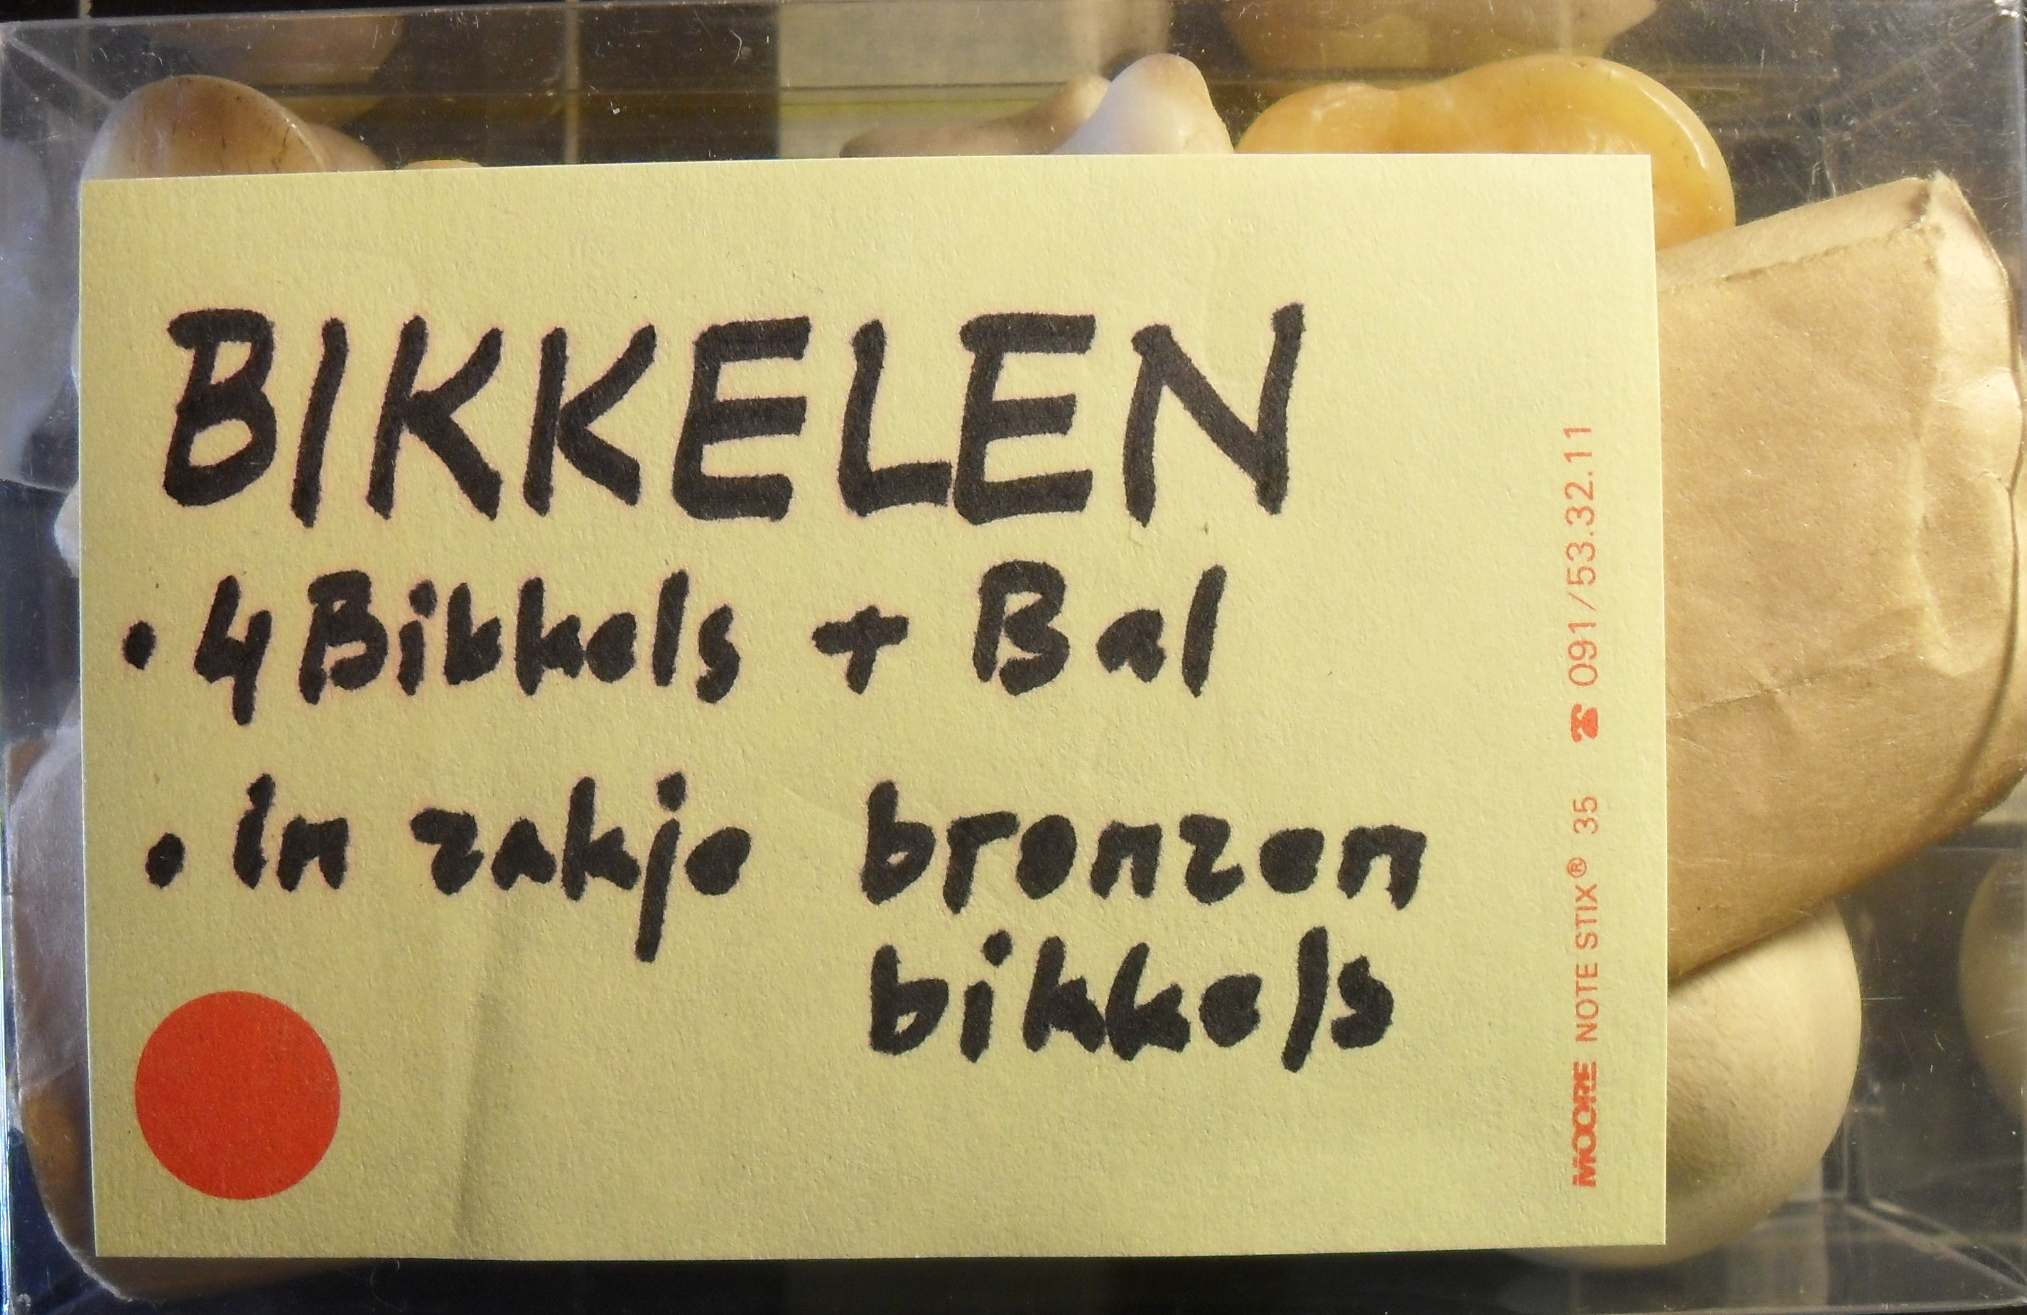 BIKKELEN
• 4 Bikkels + Bal
• In zakje bronzen
bikkels
MOORE NOTE STIX® 35 ☎ 091/53.32.11